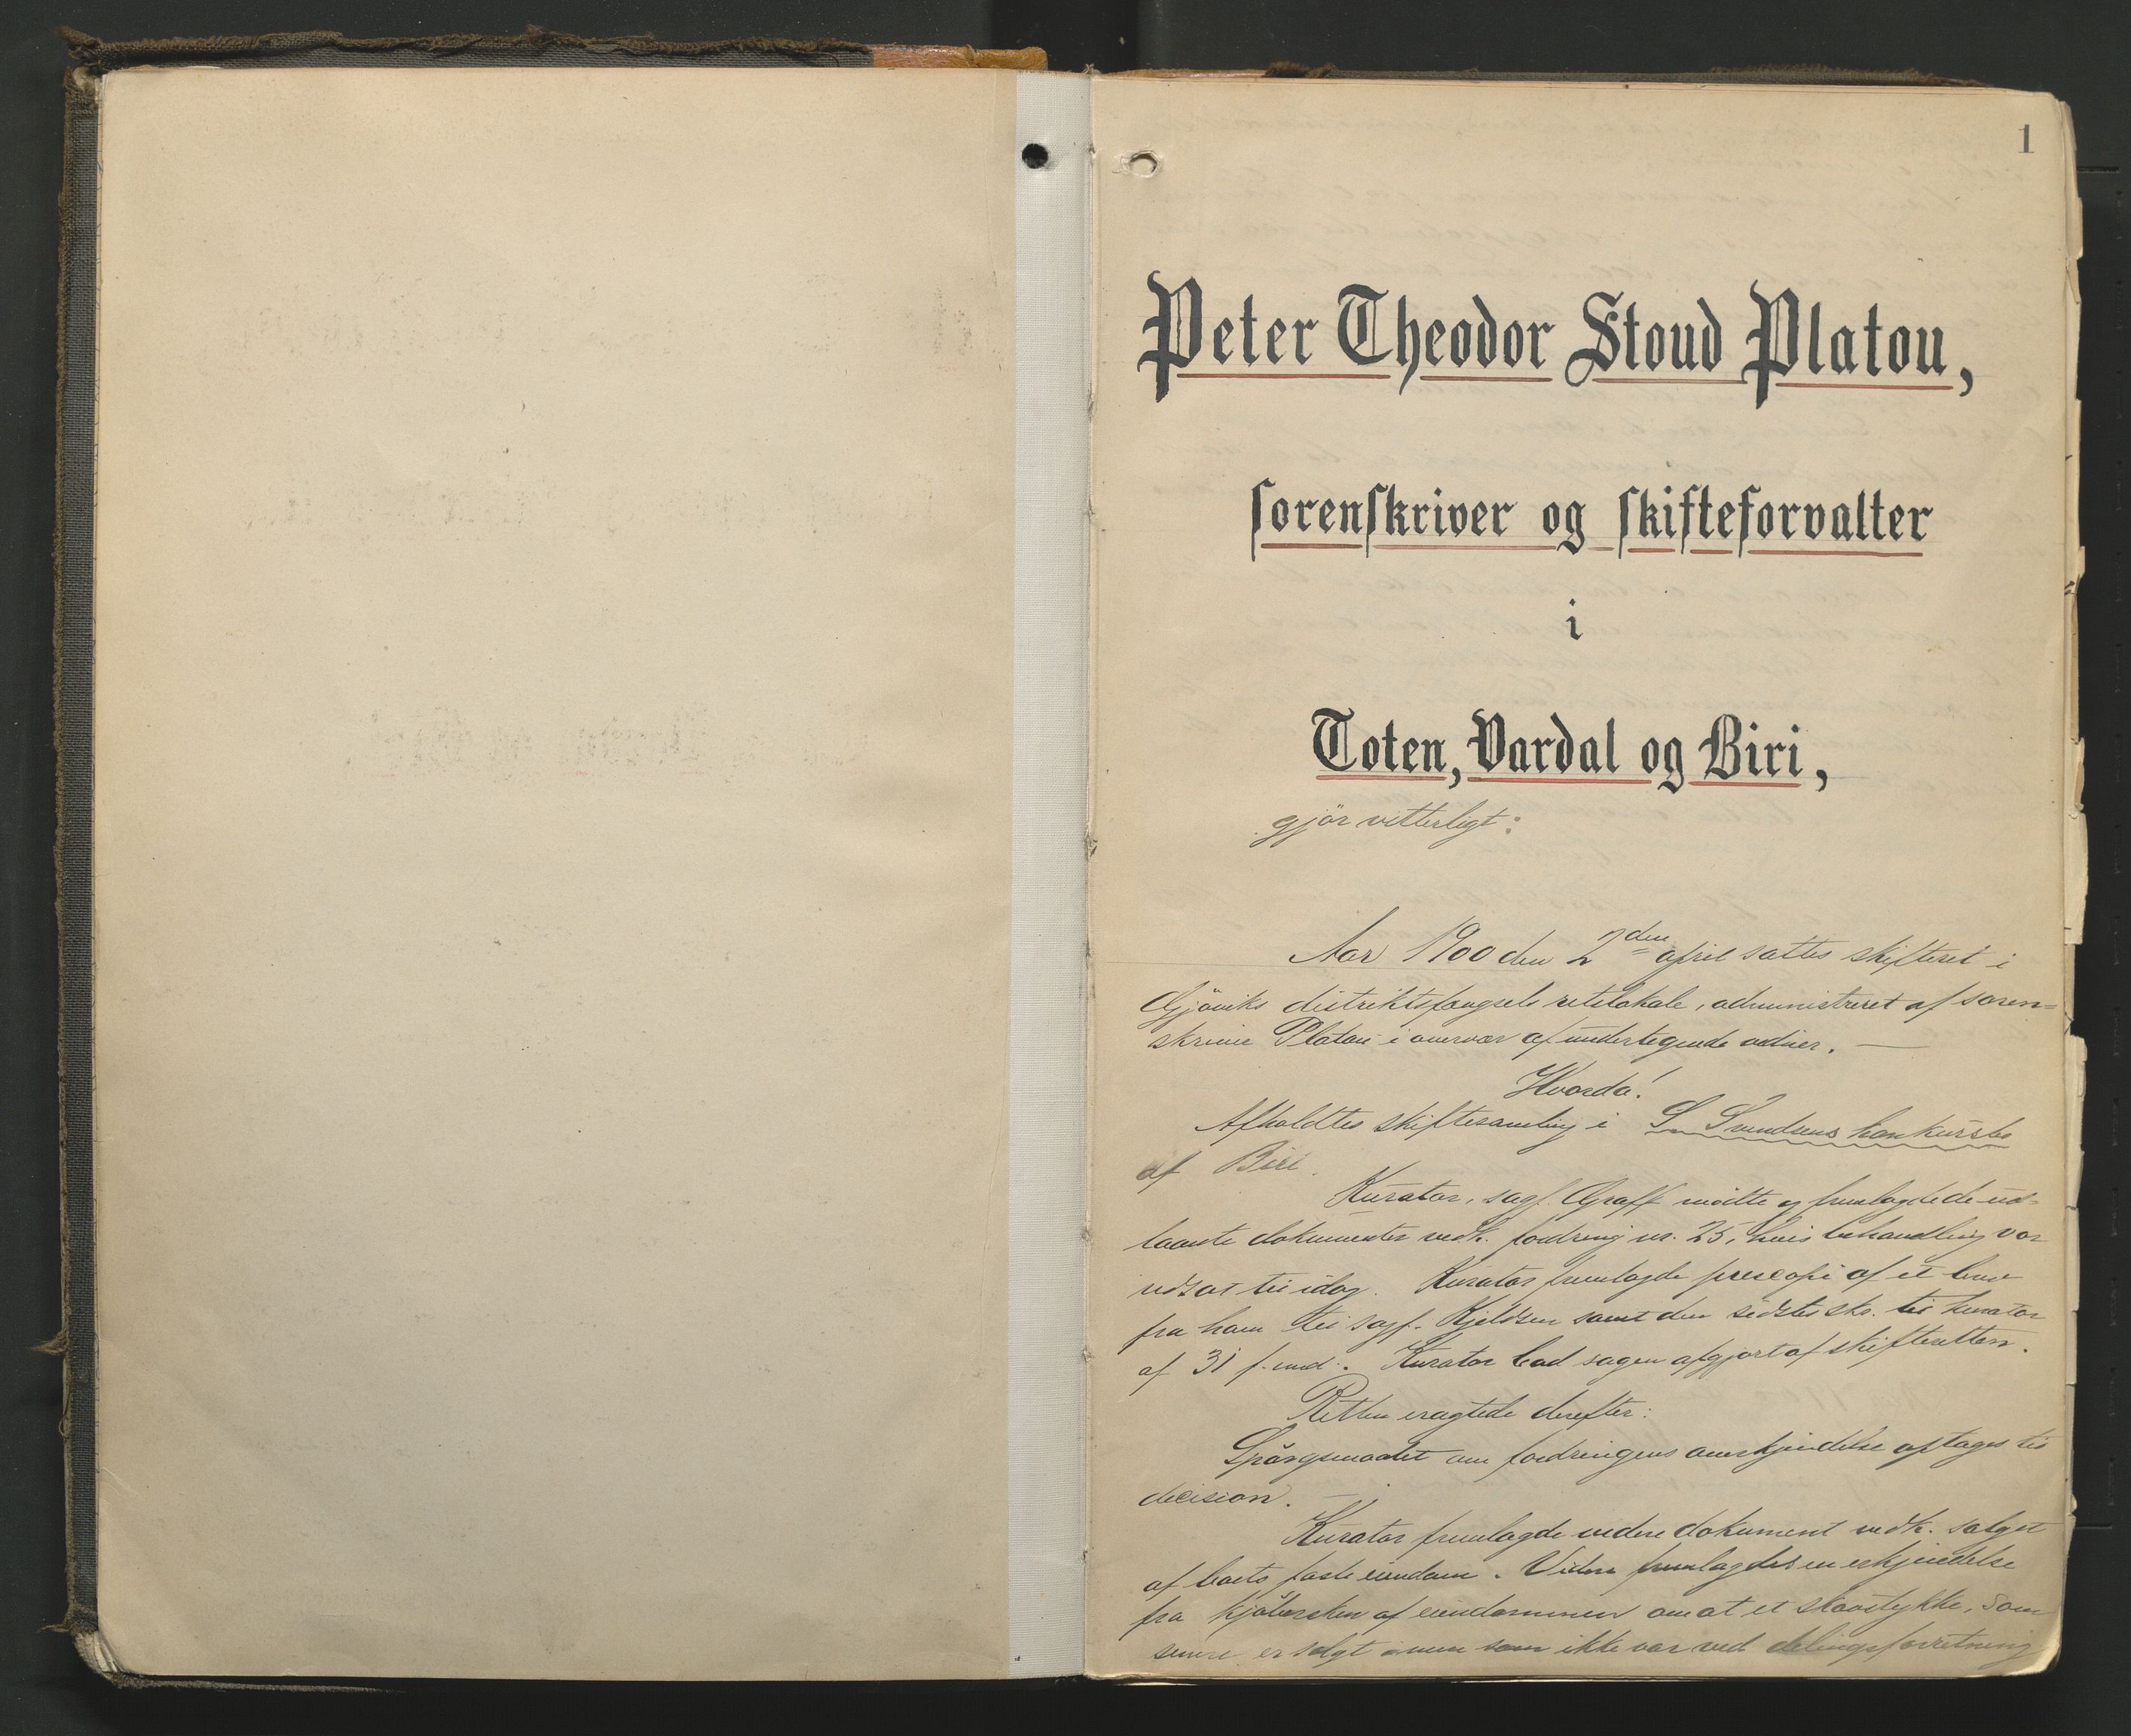 1
Peter Theodor Stoud Platou,
sorenskriver og skifteforvalter
i
Toten, Vardal og Biri,
gjör vitterligt:
Aar 1900 den 2den april sattes skifteret i
Gjöviks distriktsfængsels retslokale, administreret af soren=
skriver Platou i overvær af undertegnede vidner. —
Hvorda!
Afholdtes skiftesamling i S. Svendsens konkursbo
af Biri.
Kurator, sagf. Graff mödte og fremlagde de ud-
laante dokumenter vedk. fordring nr. 25, hvis behandling var
udsat til idag. Kurator fremlagde presscopi af et brev
fra ham til sagf. Kjeldsen samt den sidstes skr. til kurator
af 31 f. md. Kurator bad sagen afgjort af skifteretten.
Retten eragtede derefter:
Spörgsmaalet om fordringens anerkjendelse optages til
decision.
Kurator fremlagde videre dokument vedk. salget
af boets faste eiendom. Videre fremlagdes en erkjendelse
fra kjöbersken af eiendommen om at et skovstykke, som
senere er solgt men som ikke var ved delingsforretning